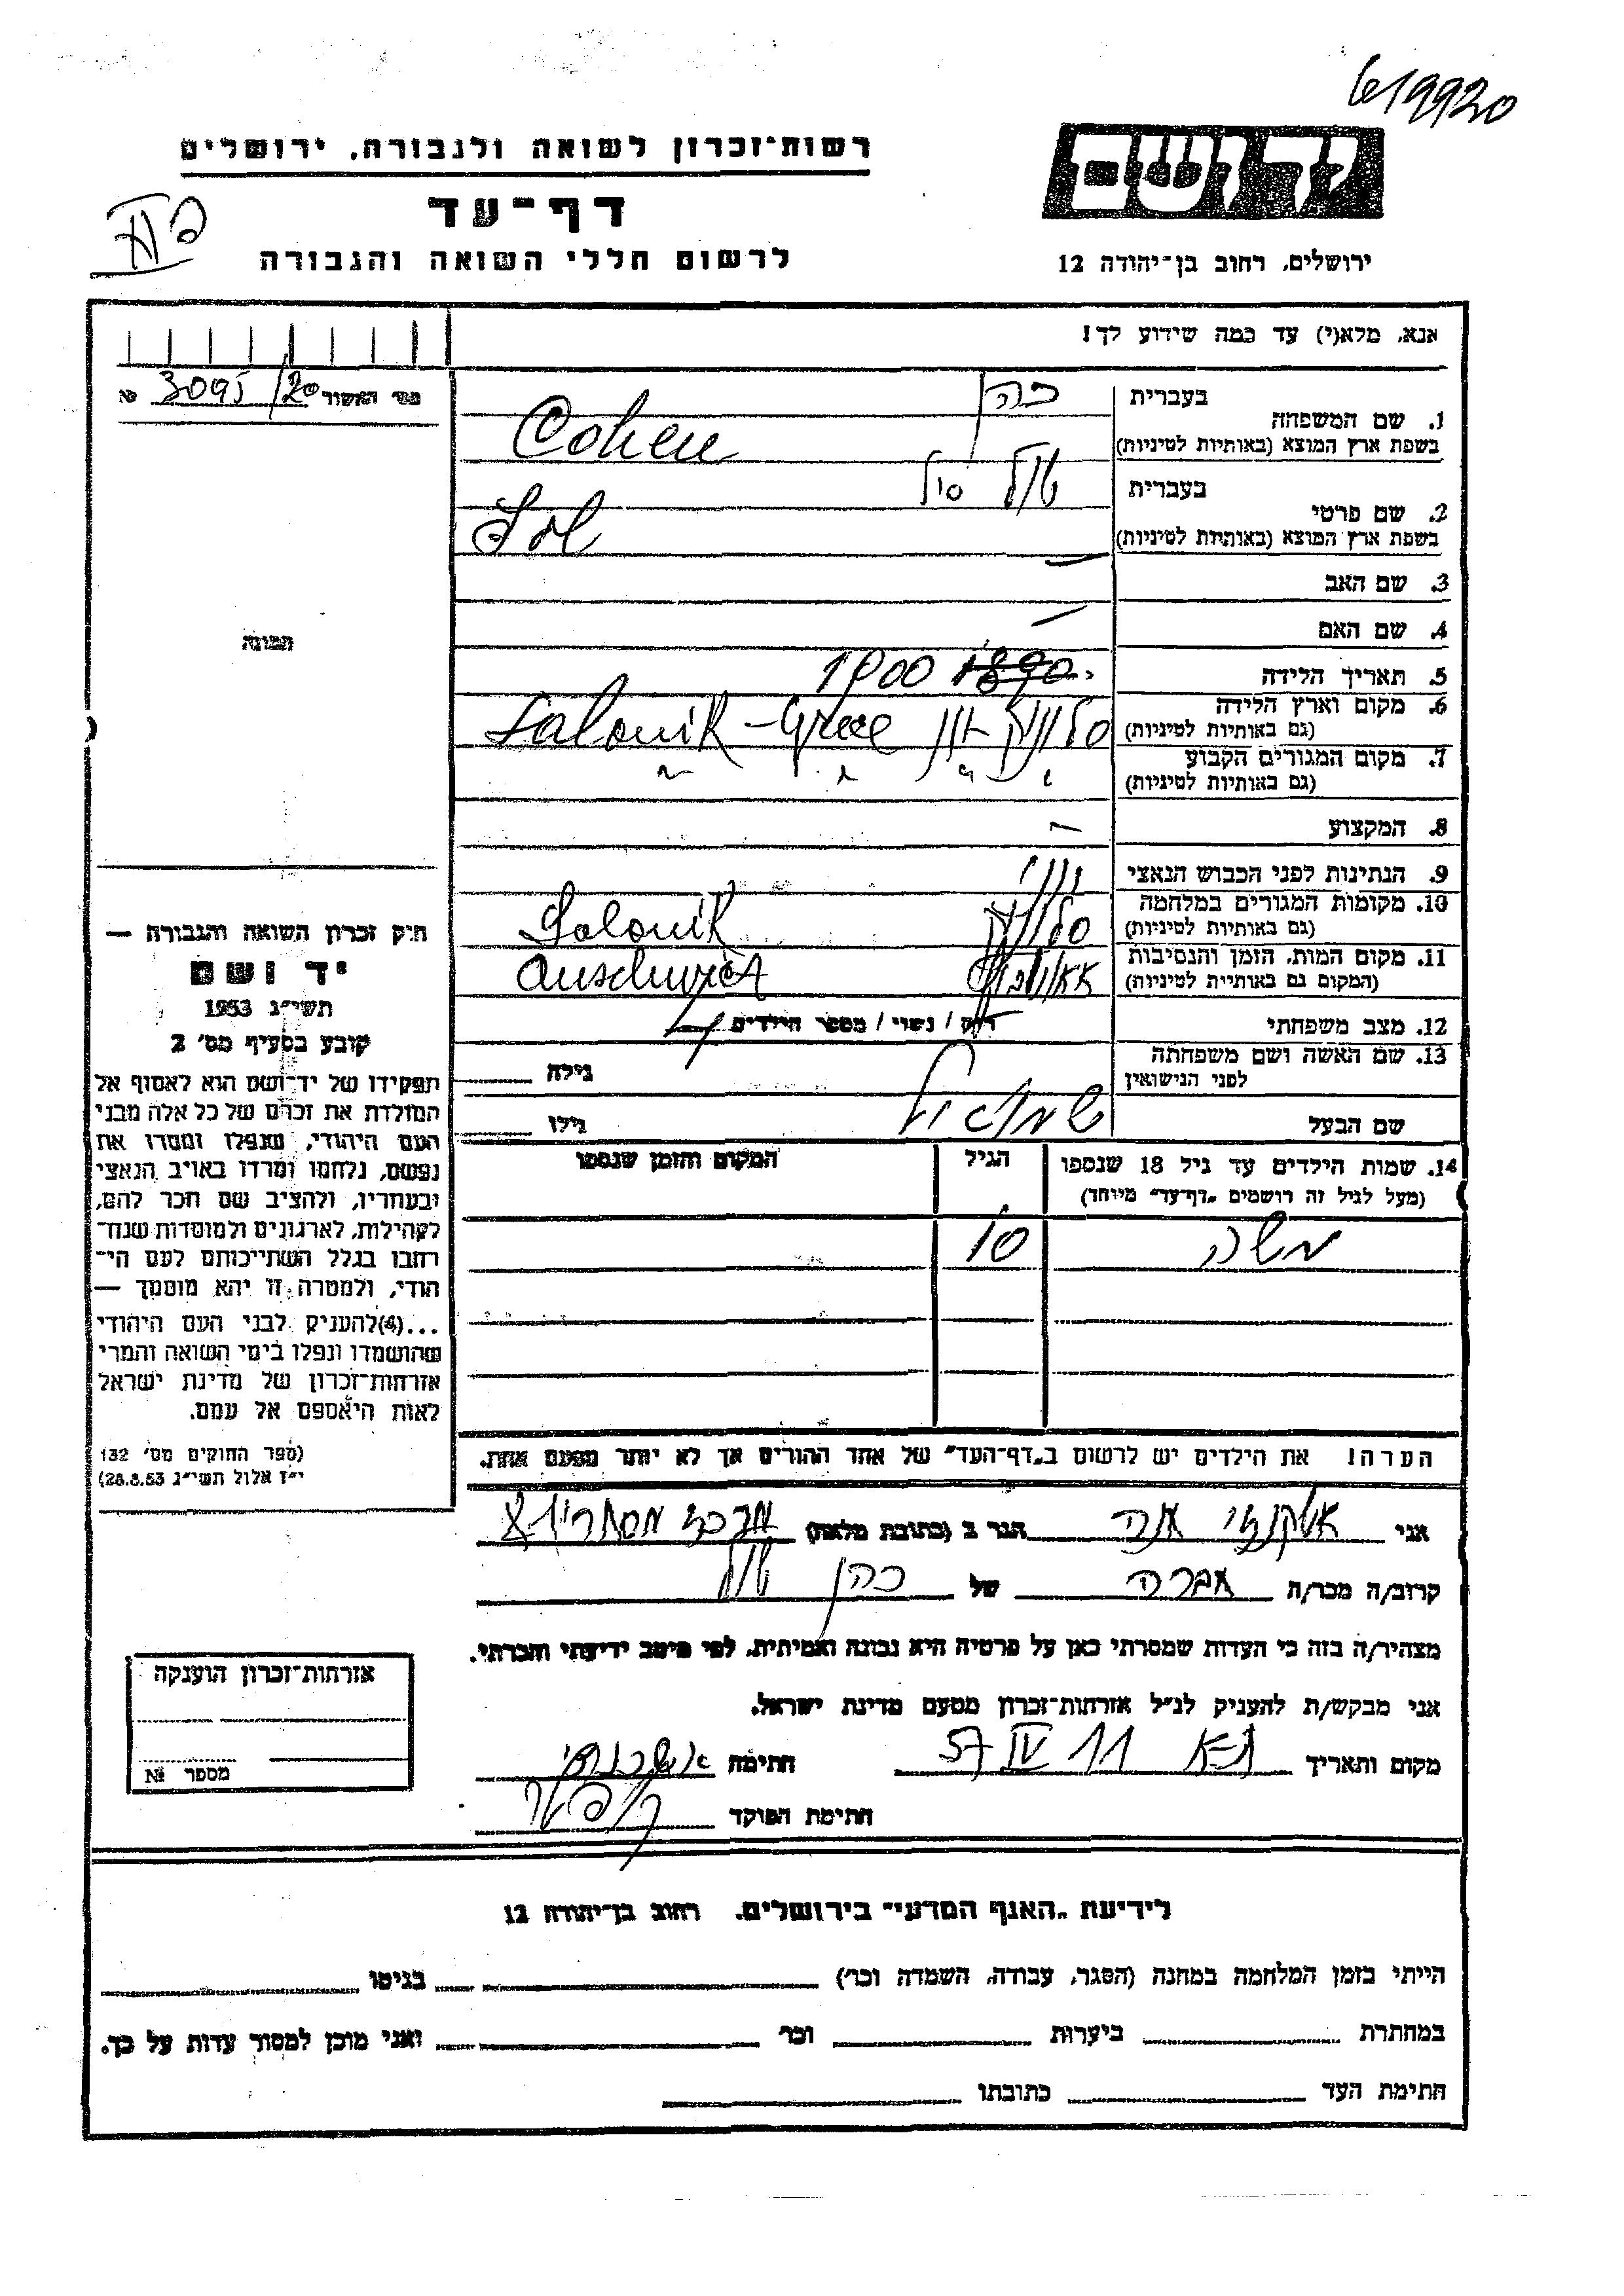 619920
רשות־זכרון לשואה ולגבורה, ירושלים
יד ושם
דף־עד
לרשום חללי השואה והגבורה
ירושלים, רחוב בן־יהודה 12
אנא, מלא(י) עד כמה שידוע לך!
מס׳ האשור 3095/20 №
1. שם המשפחה
בעברית כהן
בשפת ארץ המוצא (באותיות לטיניות) Cohen
2. שם פרטי
בעברית סול
בשפת ארץ המוצא (באותיות לטיניות) Sol
3. שם האב —
4. שם האם —
תמונה
5. תאריך הלידה 1890. 1900
6. מקום וארץ הלידה
(גם באותיות לטיניות) סלוניק יון Salonik - Grece
7. מקום המגורים הקבוע
(גם באותיות לטיניות) " " " "
8. המקצוע —
9. הנתינות לפני הכבוש הנאצי יווני
10. מקומות המגורים במלחמה
(גם באותיות לטיניות) סלוניק Salonik
11. מקום המות, הזמן והנסיבות
(המקום גם באותיית לטיניות)
12. מצב משפחתי רוק / נשוי / מספר הילדים
13. שם האשה ושם משפחתה
לפני הנישואין גילה
שם הבעל שמואל גילו
14. שמות הילדים עד גיל 18 שנספו הגיל המקום והזמן שנספו
(מעל לגיל זה רושמים „דף־עד״ מיוחד)
משה 10
הערה! את הילדים יש לרשום ב„דף־העד״ של אחד ההורים אך לא יותר מפעם אחת.
חוק זכרון השואה והגבורה —
יד ושם
תשי״ג 1953
קובע בסעיף מס׳ 2
תפקידו של יד־ושם הוא לאסוף אל
המולדת את זכרם של כל אלה מבני
העם היהודי, שנפלו ומסרו את
נפשם, נלחמו ומרדו באויב הנאצי
ובעוזריו, ולהציב שם וזכר להם,
לקהילות, לארגונים ולמוסדות שנח־
רחבו בגלל השתייכותם לעם הי־
הודי, ולמטרה זו יהא מוסמך —
...(4) להעניק לבני העם היהודי
שהושמדו ונפלו בימי השואה והמרי
אזרחות־זכרון של מדינת ישראל
לאות היאספם אל עמם.
(ספר החוקים מס׳ 132
י״ז אלול תשי״ג 28.8.53)
אני אשכנזי הגר ב (כתובת מלאה)
קרוב/ה מכר/ה של כהן
מצהיר/ה בזה כי העדות שמסרתי כאן על פרטיה היא נכונה ואמיתית, לפי מיטב ידיעתי והכרתי.
אני מבקש/ת להעניק לנ״ל אזרחות־זכרון מטעם מדינת ישראל.
מקום ותאריך ת-א 11 IV 57 חתימה אשכנזי
חתימת הפוקד
אזרחות־זכרון הוענקה
מספר №
לידיעת „האגף המדעי״ בירושלים. רחוב בן־יהודה 12
הייתי בזמן המלחמה במחנה (הסגר, עבודה, השמדה וכר׳) בגיטו
במחתרת ביערות וכר׳ ואני מוכן למסור עדות על כך.
חתימת העד כתובתו